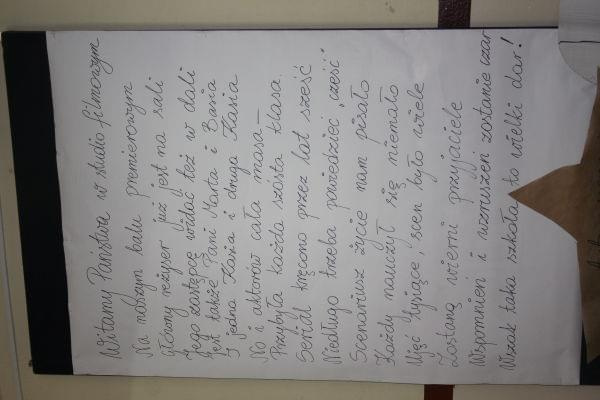 Witamy Państwa w studio filmowym
Na naszym balu premierowym
Główny reżyser już jest na sali
Jego zastępcę widać też w dali
Jest także Pani Marta i Basia
I jedna Kasia i druga Kasia
No i aktorów cała masa –
Przybyła każda szósta klasa.
Serial kręcono przez lat sześć
Niedługo trzeba powiedzieć „cześć”
Scenariusz życie nam pisało
Każdy nauczył się niemało
Ujęć tysiące, scen było wiele
Zostaną wierni przyjaciele
Wspomnień i wzruszeń zostanie czar
Wszak taka szkoła to wielki dar!